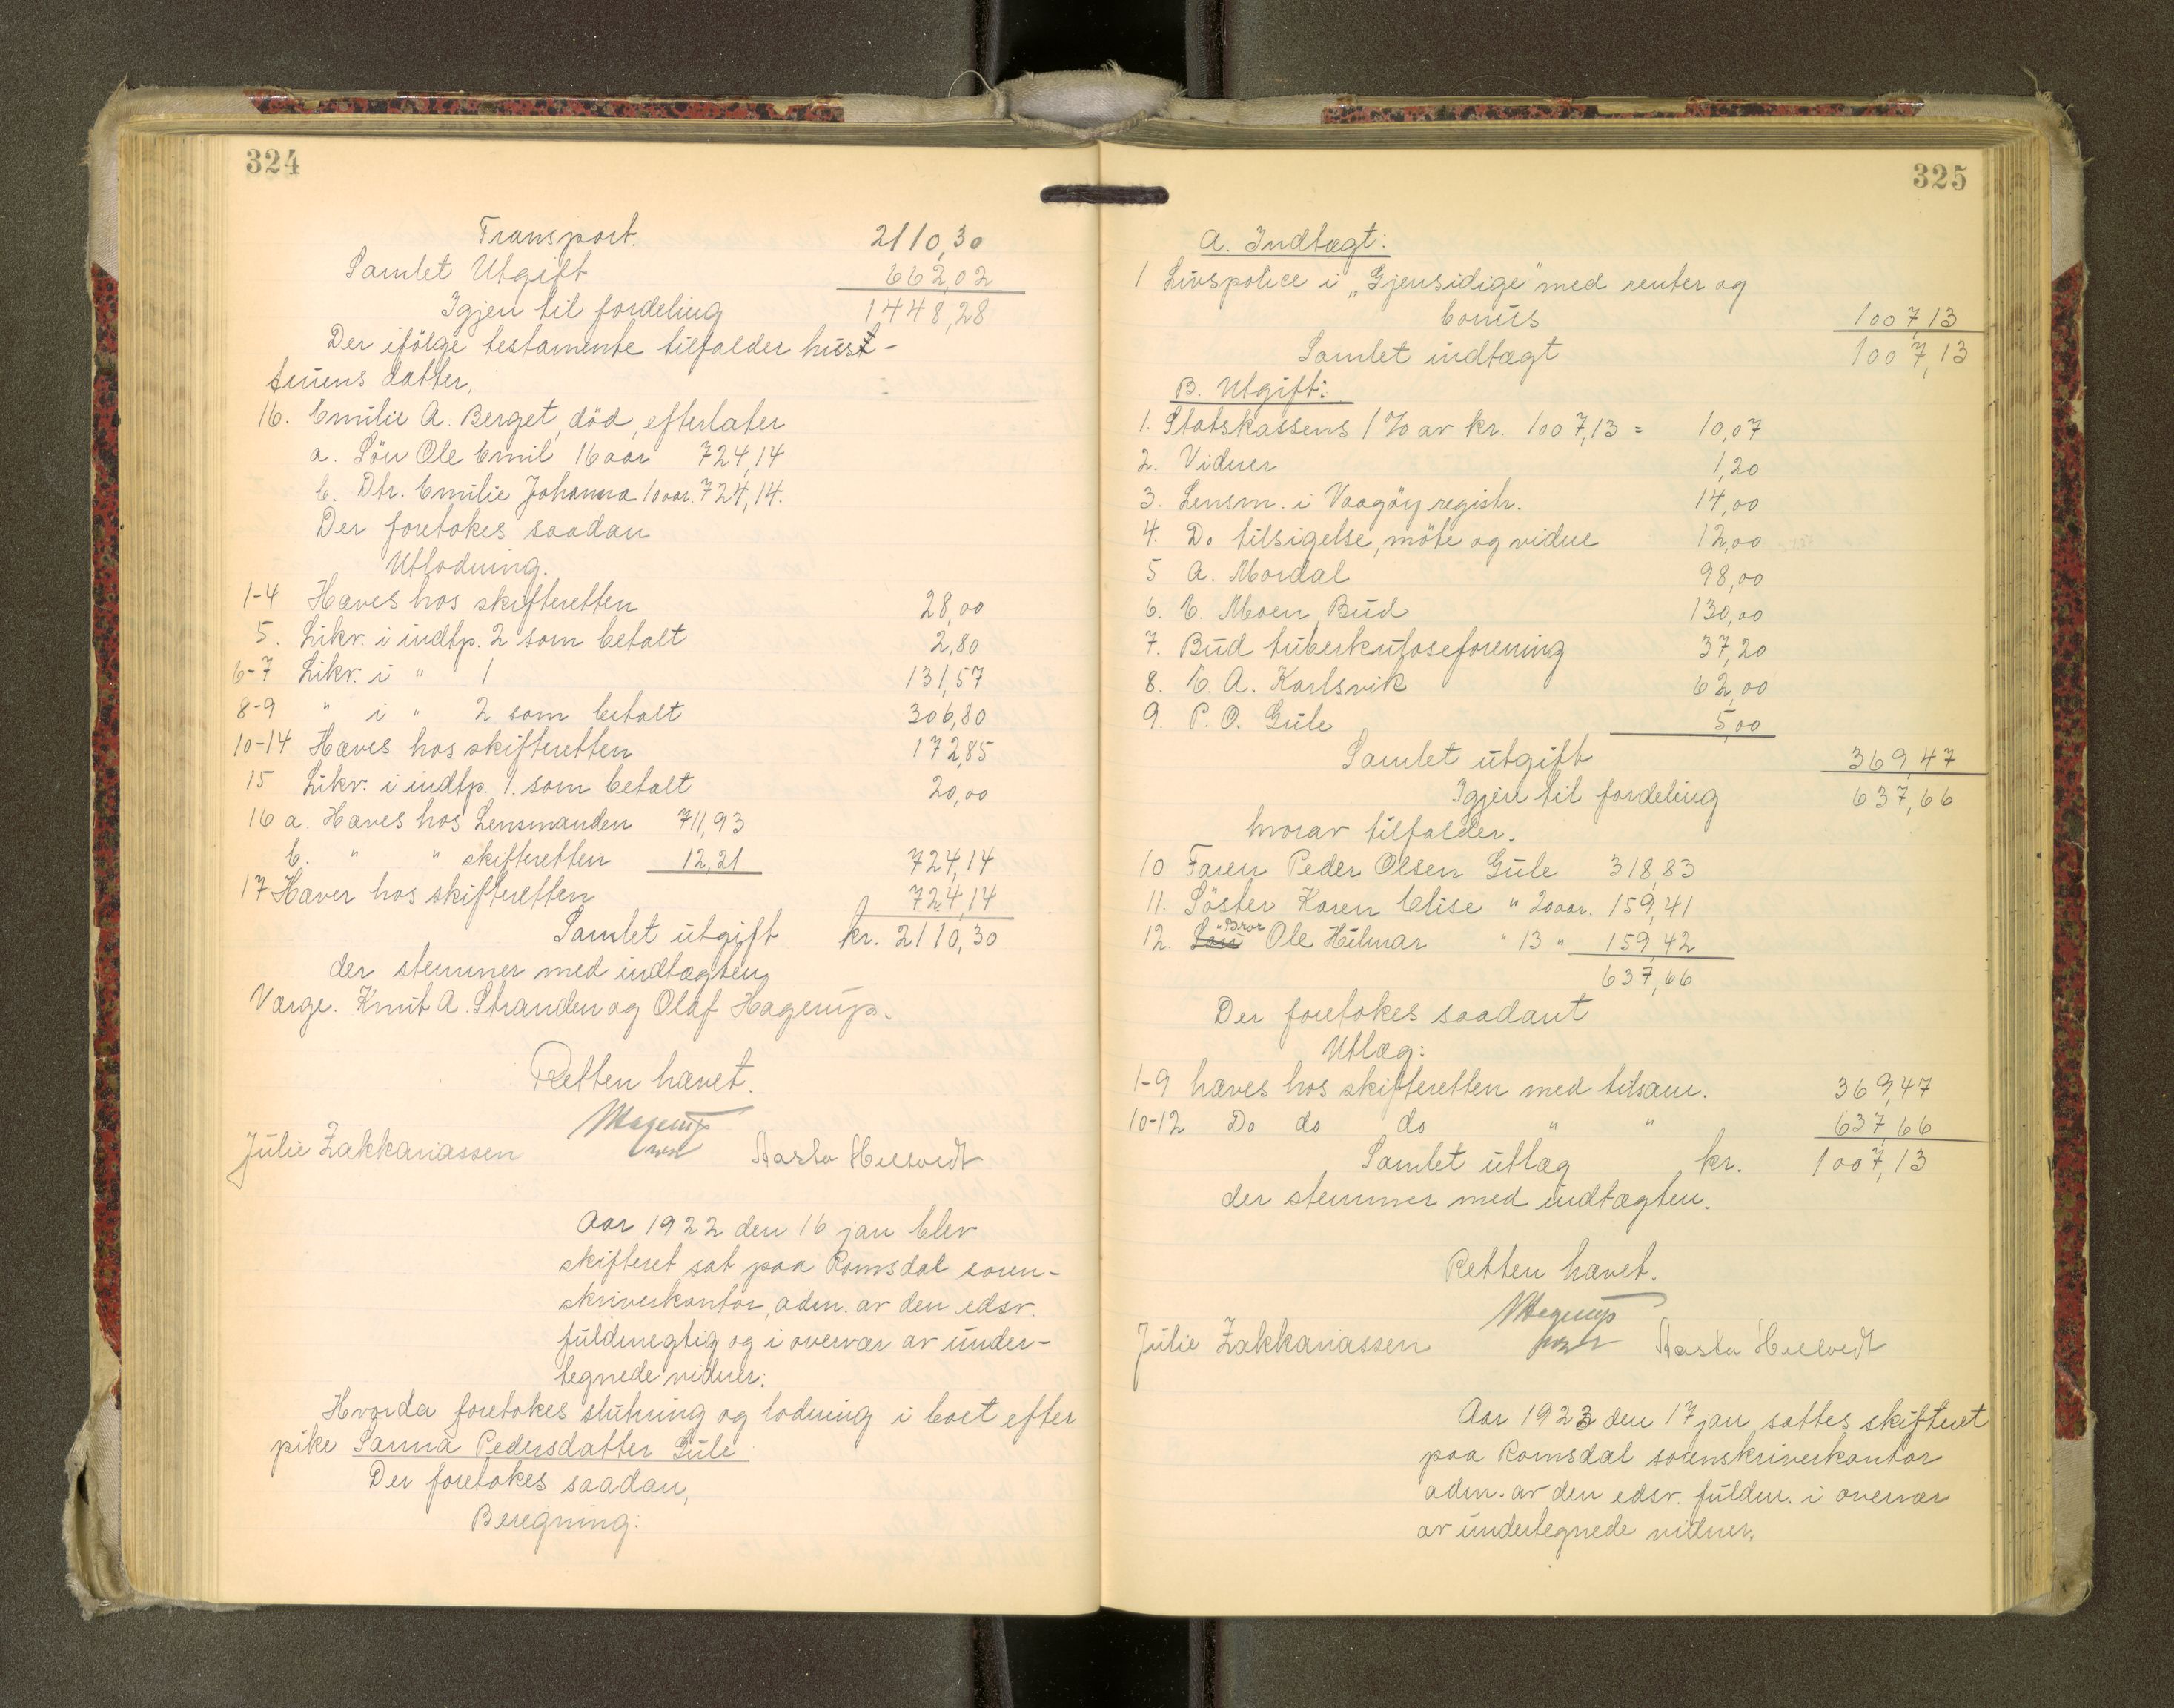 324
Transport. 2110,30
Samlet Utgift 662,02
Igjen til fordeling 1448,28
Der ifölge testamente tilfalder hust-
truens datter,
16. Emilie A. Berget, död, efterlater
a. Sön Ole Emil 16 aar 724,14
b. Dtr. Emilie Johanna 10 aar. 724,14.
Der foretokes saadan
Utlodning.
1-4 Hæves hos skifteretten 28,00
5. Likv. i indtp. 2 som betalt 2,80
6-7 Likv. i " 1 131,57
8-9 " i " 2 som betalt 306,80
10-14 Hæves hos skifteretten 172,85
15 Likv. i indtp. 1. som betalt 20,00
16 a. Hæves hos Lensmanden 711,93
b. " " skifteretten 12,21 724,14
17 Hæver hos skifteretten 724,14
Samlet utgift kr. 2110,30
der stemmer med indtægten,
Værge. Knut A. Stranden og Olaf Hagerup.
Retten hævet.
Hagerup
Julie Zakkariassen Aasta
Aar 1922 den 16 jan blev
skifteret sat paa Romsdal soren-
skriverkontor, adm. av den edsv.
fuldmegtig og i overvær av under-
tegnede vidner:
Hvorda foretokes slutning og lodning i boet efter
pike Sanna Pedersdatter Gule
Der foretokes saadan,
Beregning:
325
A. Indtægt:
1 Livspolice i „Gjensidige" med renter og
bonus 1007,13
Samlet indtægt 1007,13
B. Utgift:
1. Statskassens 1% av kr. 1007,13 = 10,07
2. Vidner 1,20
3. Lensm. i Vaagöy registr. 14,00
4. Do tilsigelse, möte og vidne 12,00
5 A. Mordal 98,00
6. E. Moen, Bud 130,00
7. Bud tuberkuloseforening 37,20
8. E. A. Karlsvik 62,00
9. P. O. Gule 5,00
Samlet utgift 369,47
Igjen til fordeling 637,66
hvorav tilfalder.
10 Faren Peder Olsen Gule 318,83
11. Söster Karen Elise " 20 aar. 159,41
12. Bror Ole Hilmar " 13 " 159,42
637,66
Der foretokes saadant
Utlæg:
1-9 hæves hos skifteretten med tilsam. 369,47
10-12 Do do do " " 637,66
Samlet utlæg kr. 1007,13
der stemmer med indtægten.
Retten hævet.
Hagerup
Julie Zakkariassen Aasta
Aar 1923 den 17 jan sattes skifteret
paa Romsdal sorenskriverkontor
adm. av den edsv. fuldm. i overvær
av undertegnede vidner.